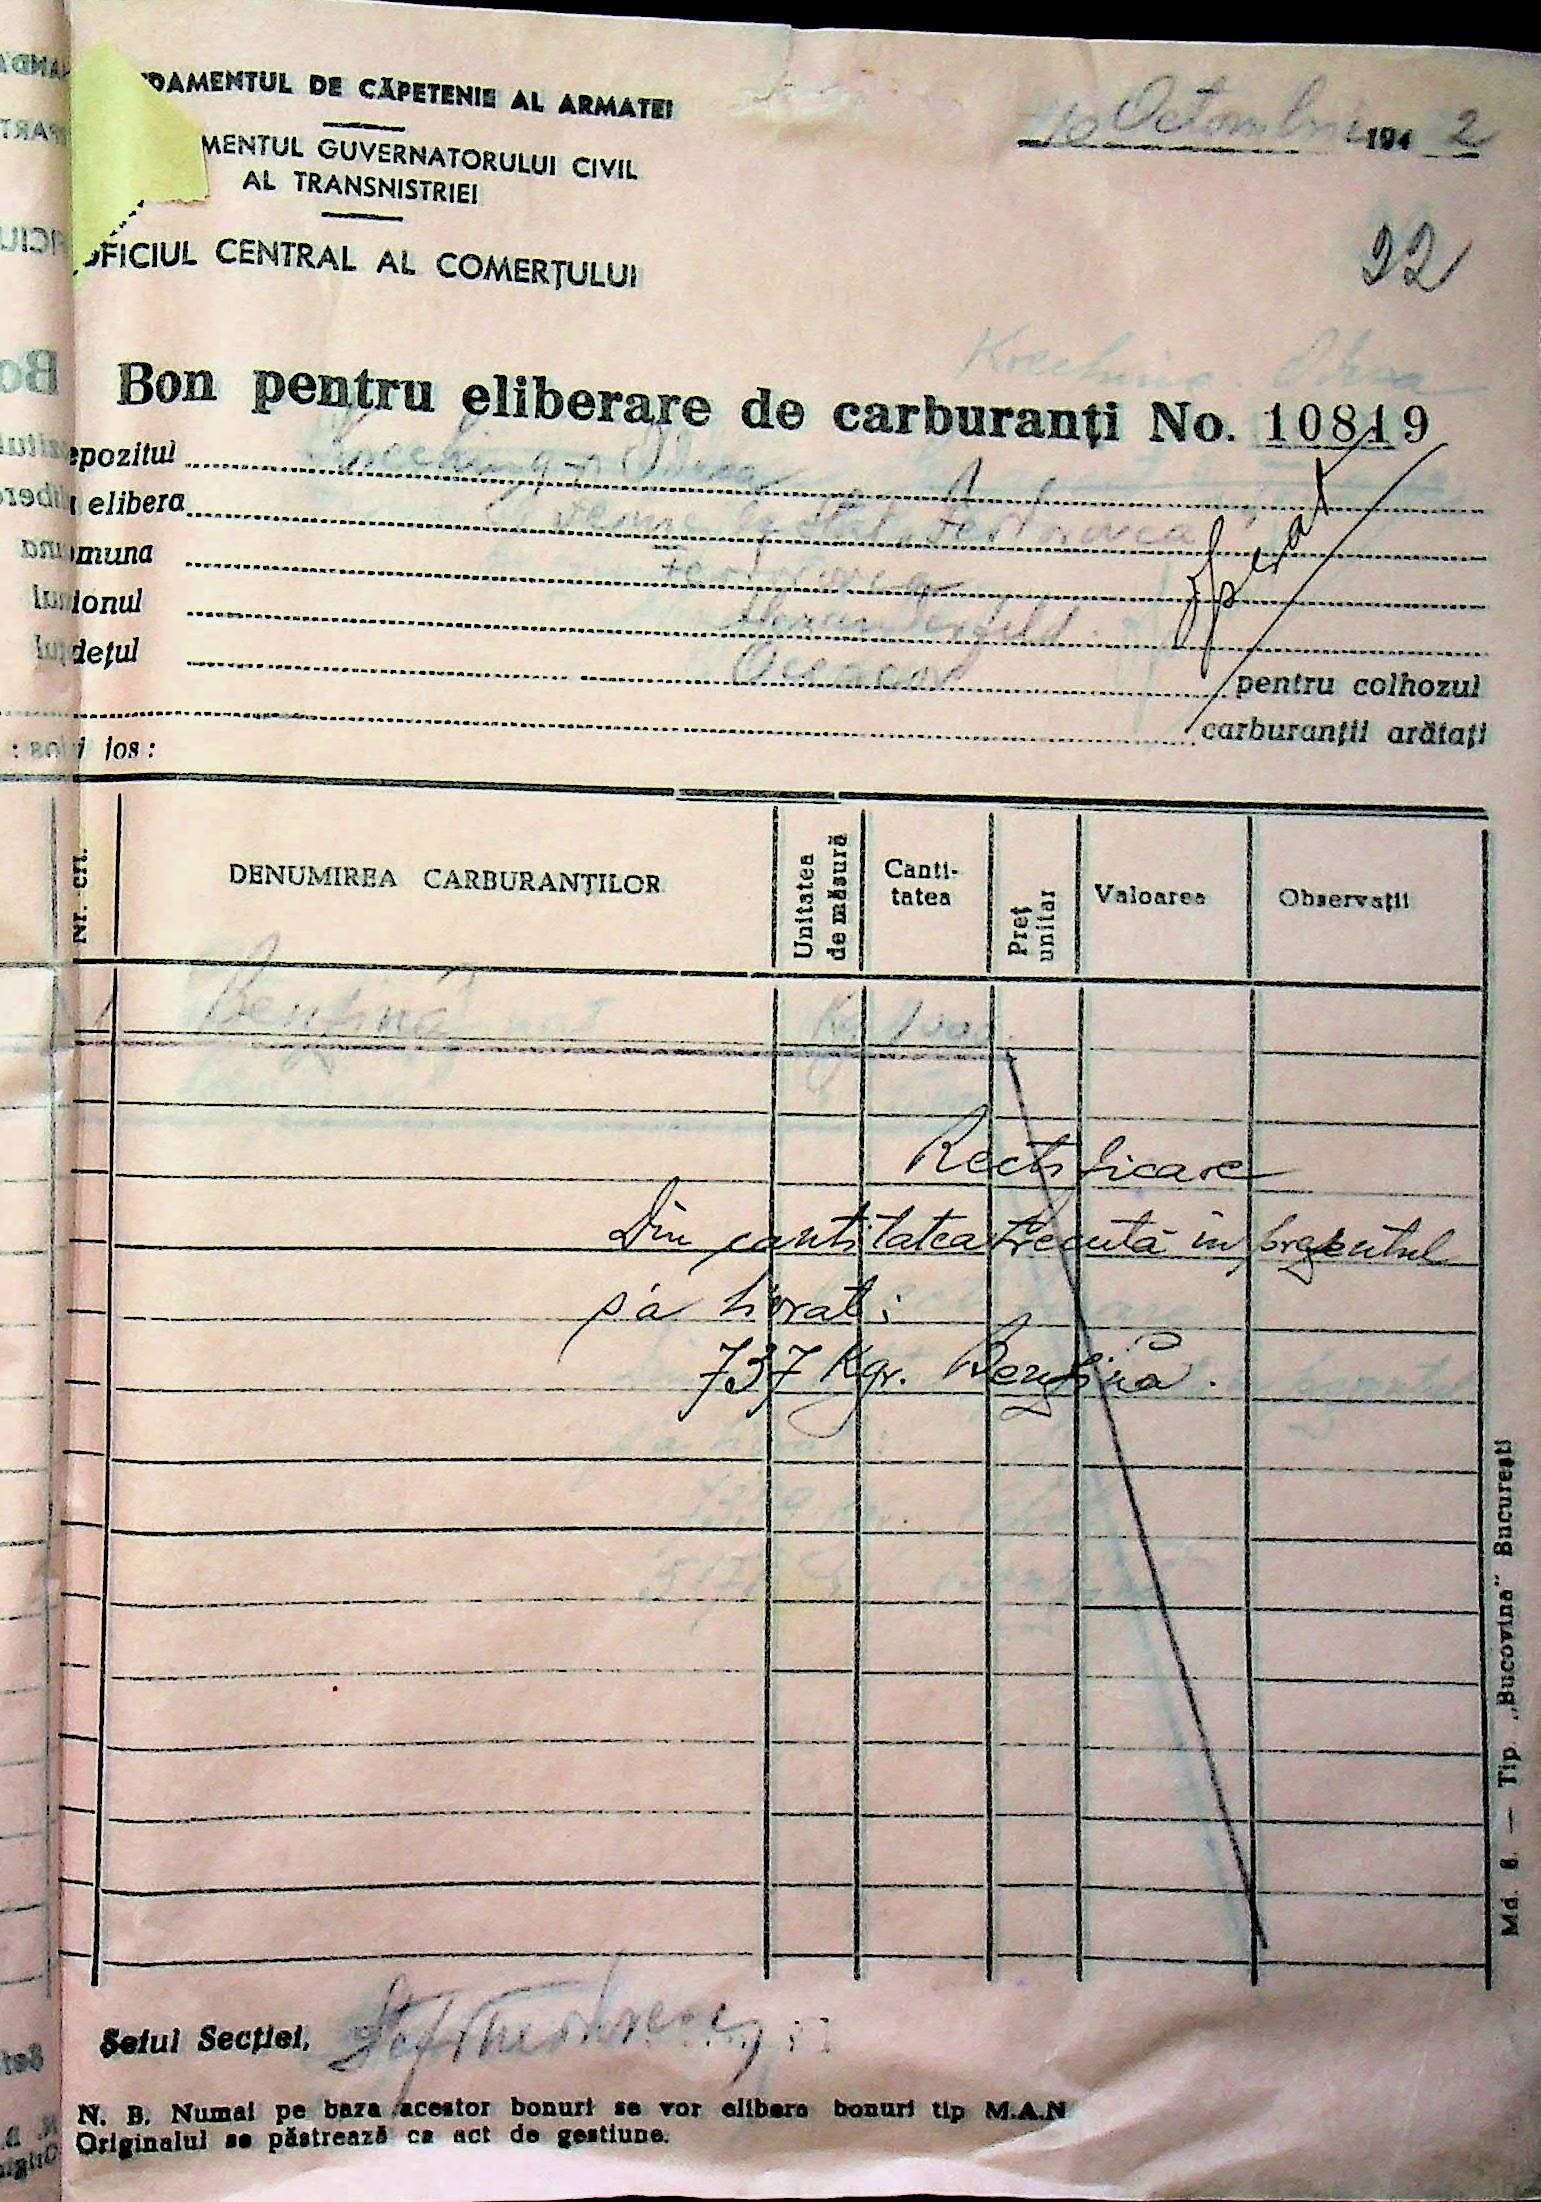 DAMENTUL DE CĂPETENIE AL ARMATEI
MENTUL GUVERNATORULUI CIVIL
AL TRANSNISTRIEI
OFICIUL CENTRAL AL COMERȚULUI
10 Octombrie 194 2
22
Bon pentru eliberare de carburanți No. 10819
epozitul
elibera
muna
ionul
dețul Oceacov pentru colhozul
carburanții arătați
jos :
Operat
Nr. crt.
DENUMIREA CARBURANȚILOR
Unitatea de măsură
Canti-
tatea
Preț unitar
Valoarea
Observații
1 Benzină Kg
Rectificare
Din cantitatea trecută în prezentul
s'a livrat:
737 Kgr. Benzină.
Șeful Secției,
N. B. Numai pe baza acestor bonuri se vor elibera bonuri tip M.A.N
Originalul se păstrează ca act de gestiune.
Md. 6. — Tip. „Bucovina" București